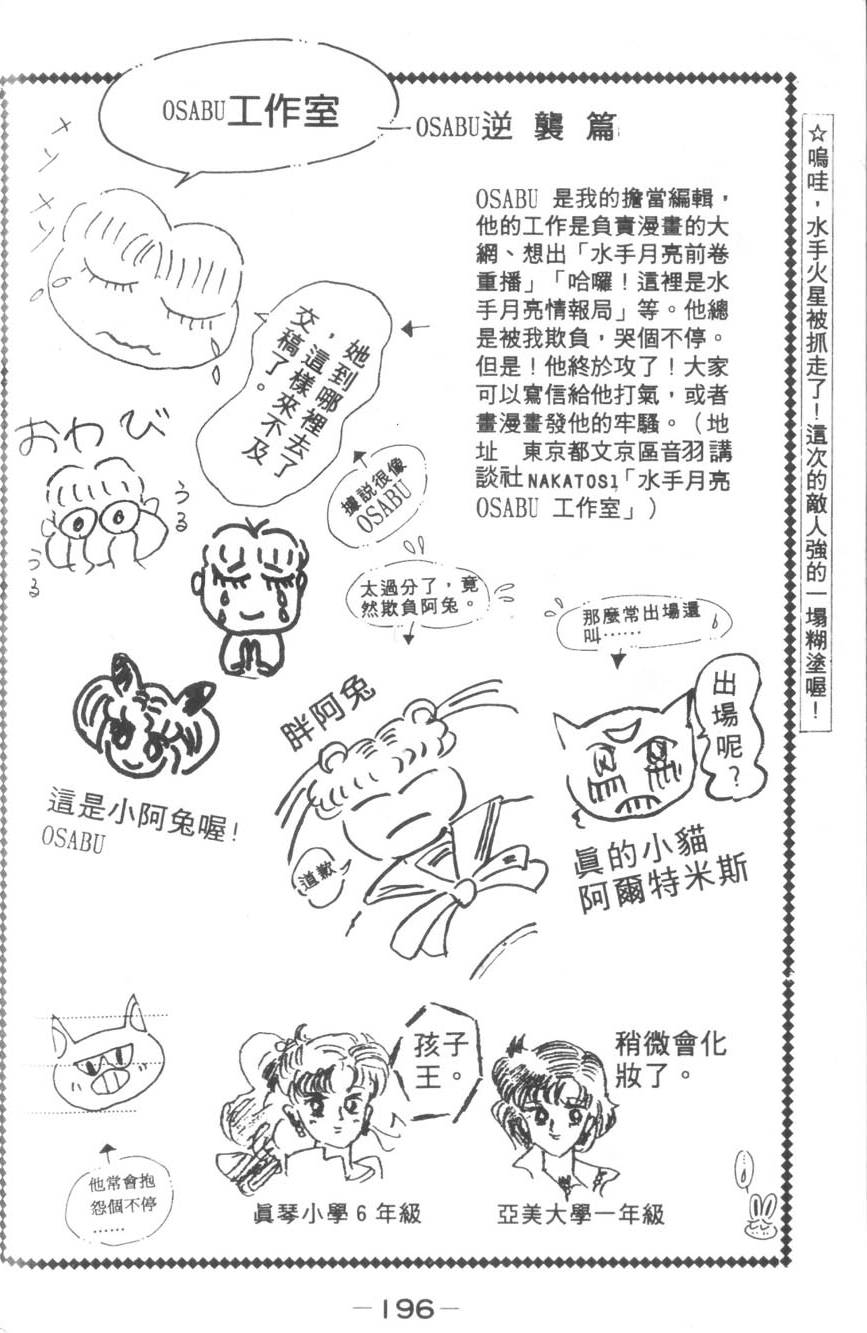 OSABU工作室
OSABU逆襲篇
OSABU 是我的擔當編輯，
他的工作是負責漫畫的大
網、想出「水手月亮前卷
重播」「哈囉！這裡是水
手月亮情報局」等。他總
是被我欺負，哭個不停。
但是！他終於攻了！大家
可以寫信給他打氣，或者
畫漫畫發他的牢騷。（地
址　東京都文京區音羽講
談社NAKATOS1「水手月亮
OSABU 工作室」）
☆嗚哇，水手火星被抓走了！這次的敵人強的一塌糊塗喔！
メソ
メソ
她到哪裡去了
，這樣來不及
交稿了。
おわび
うる
うる
據説很像
OSABU
太過分了，竟
然欺負阿兔。
那麼常出場還
叫……
出場呢？
胖阿兔
道歉
這是小阿兔喔！
OSABU
眞的小貓
阿爾特米斯
孩子
王。
稍微會化
妝了。
他常會抱
怨個不停
……
眞琴小學6年級
亞美大學一年級
—196—